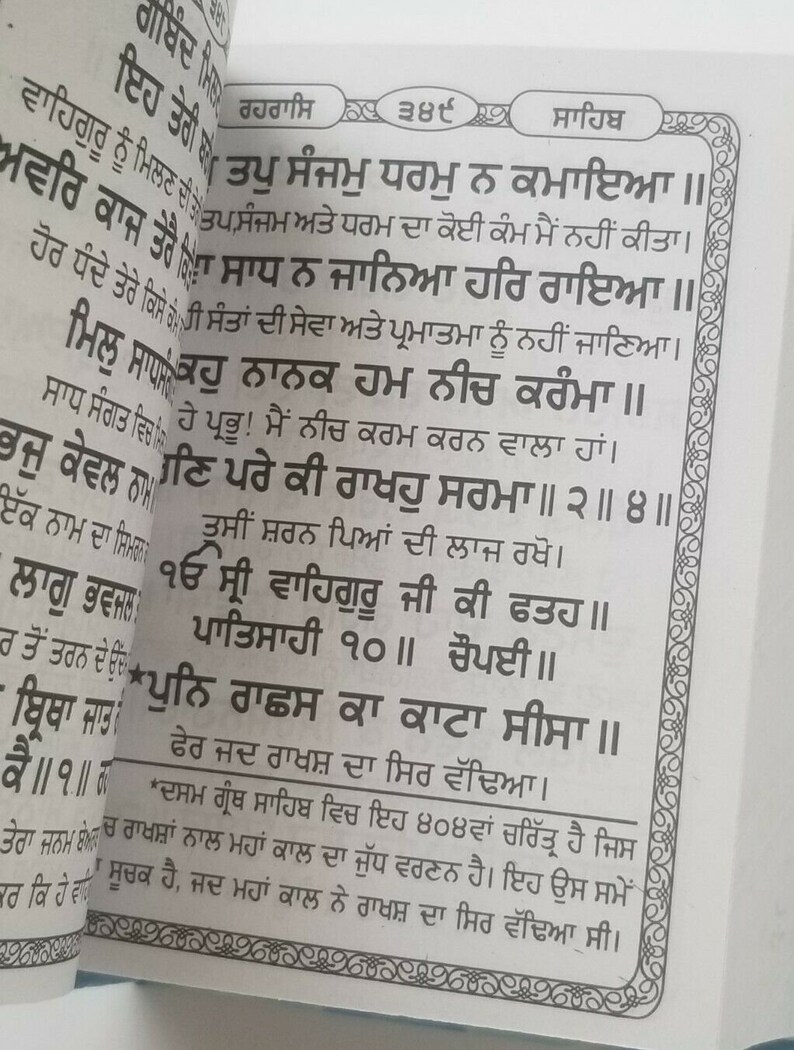 ੩੪੮
ਗੋਬਿੰਦ
ਇਹ ਤੇਰੀ
ਵਾਹਿਗੁਰੂ ਨੂੰ ਮਿਲਣ ਦੀ
ਅਵਰਿ ਕਾਜ ਤੇਰੈ
ਹੋਰ ਧੰਦੇ ਤੇਰੇ ਕਿਸੇ
ਮਿਲੁ
ਸਾਧ ਸੰਗਤ ਵਿਚ
ਭਜੁ ਕੇਵਲ ਨਾਮ
ਇੱਕ ਨਾਮ ਦਾ ਸਿਮਰਨ
ਲਾਗੁ ਭਵਜਲ
ਤੋਂ ਤਰਨ ਦੇ
ਬ੍ਰਿਥਾ ਜਾਤ
ਕੈ॥੧॥
ਤੇਰਾ ਜਨਮ
ਕਿ ਹੇ
ਰਹਰਾਸਿ ੩੪੯ ਸਾਹਿਬ
ਤਪੁ ਸੰਜਮੁ ਧਰਮੁ ਨ ਕਮਾਇਆ॥
ਤਪ,ਸੰਜਮ ਅਤੇ ਧਰਮ ਦਾ ਕੋਈ ਕੰਮ ਮੈਂ ਨਹੀਂ ਕੀਤਾ।
ਸਾਧ ਨ ਜਾਨਿਆ ਹਰਿ ਰਾਇਆ॥
ਸੰਤਾਂ ਦੀ ਸੇਵਾ ਅਤੇ ਪ੍ਰਮਾਤਮਾ ਨੂੰ ਨਹੀਂ ਜਾਣਿਆ।
ਕਹੁ ਨਾਨਕ ਹਮ ਨੀਚ ਕਰੰਮਾ॥
ਹੇ ਪ੍ਰਭੂ! ਮੈਂ ਨੀਚ ਕਰਮ ਕਰਨ ਵਾਲਾ ਹਾਂ।
ਪਰੇ ਕੀ ਰਾਖਹੁ ਸਰਮਾ॥੨॥੪॥
ਤੁਸੀਂ ਸ਼ਰਨ ਪਿਆਂ ਦੀ ਲਾਜ ਰਖੋ।
ੴ ਸ੍ਰੀ ਵਾਹਿਗੁਰੂ ਜੀ ਕੀ ਫਤਹ॥
ਪਾਤਿਸਾਹੀ ੧੦॥ ਚੌਪਈ॥
*ਪੁਨਿ ਰਾਛਸ ਕਾ ਕਾਟਾ ਸੀਸਾ॥
ਫੇਰ ਜਦ ਰਾਖਸ਼ ਦਾ ਸਿਰ ਵੱਢਿਆ।
*ਦਸਮ ਗ੍ਰੰਥ ਸਾਹਿਬ ਵਿਚ ਇਹ ੪੦੪ਵਾਂ ਚਰਿੱਤ੍ਰ ਹੈ ਜਿਸ
ਰਾਖਸ਼ਾਂ ਨਾਲ ਮਹਾਂ ਕਾਲ ਦਾ ਜੁੱਧ ਵਰਣਨ ਹੈ। ਇਹ ਉਸ ਸਮੇਂ
ਸੂਚਕ ਹੈ, ਜਦ ਮਹਾਂ ਕਾਲ ਨੇ ਰਾਖਸ਼ ਦਾ ਸਿਰ ਵੱਢਿਆ ਸੀ।